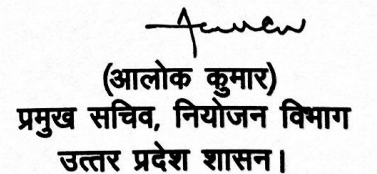 (आलोक कुमार)
प्रमुख सचिव, नियोजन विभाग
उत्तर प्रदेश शासन।